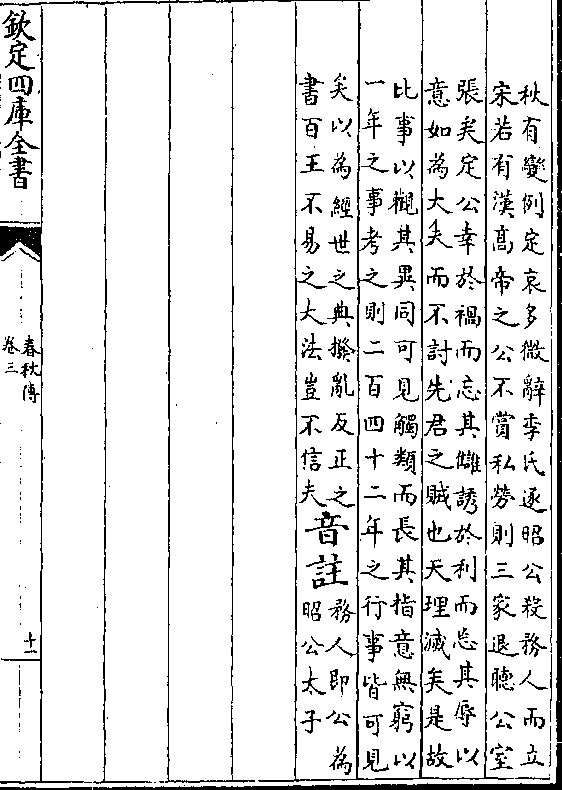 秋有變例定哀多微辭季氏逐昭公殺務人而立
宋若有漢高帝之公不賞私勞則三家退聽公室
張矣定公幸於禍而忘其讎誘於利而忘其辱以
意如為大夫而不討先君之賊也天理滅矣是故
比事以觀其異同可見觸類而長其指意無窮以
一年之事考之則二百四十二年之行事皆可見
矣以為經世之典撥亂反正之
書百王不易之大法豈不信夫
音註
務人即公為
昭公太子
欽定四庫全書
春秋傳
卷三
十一